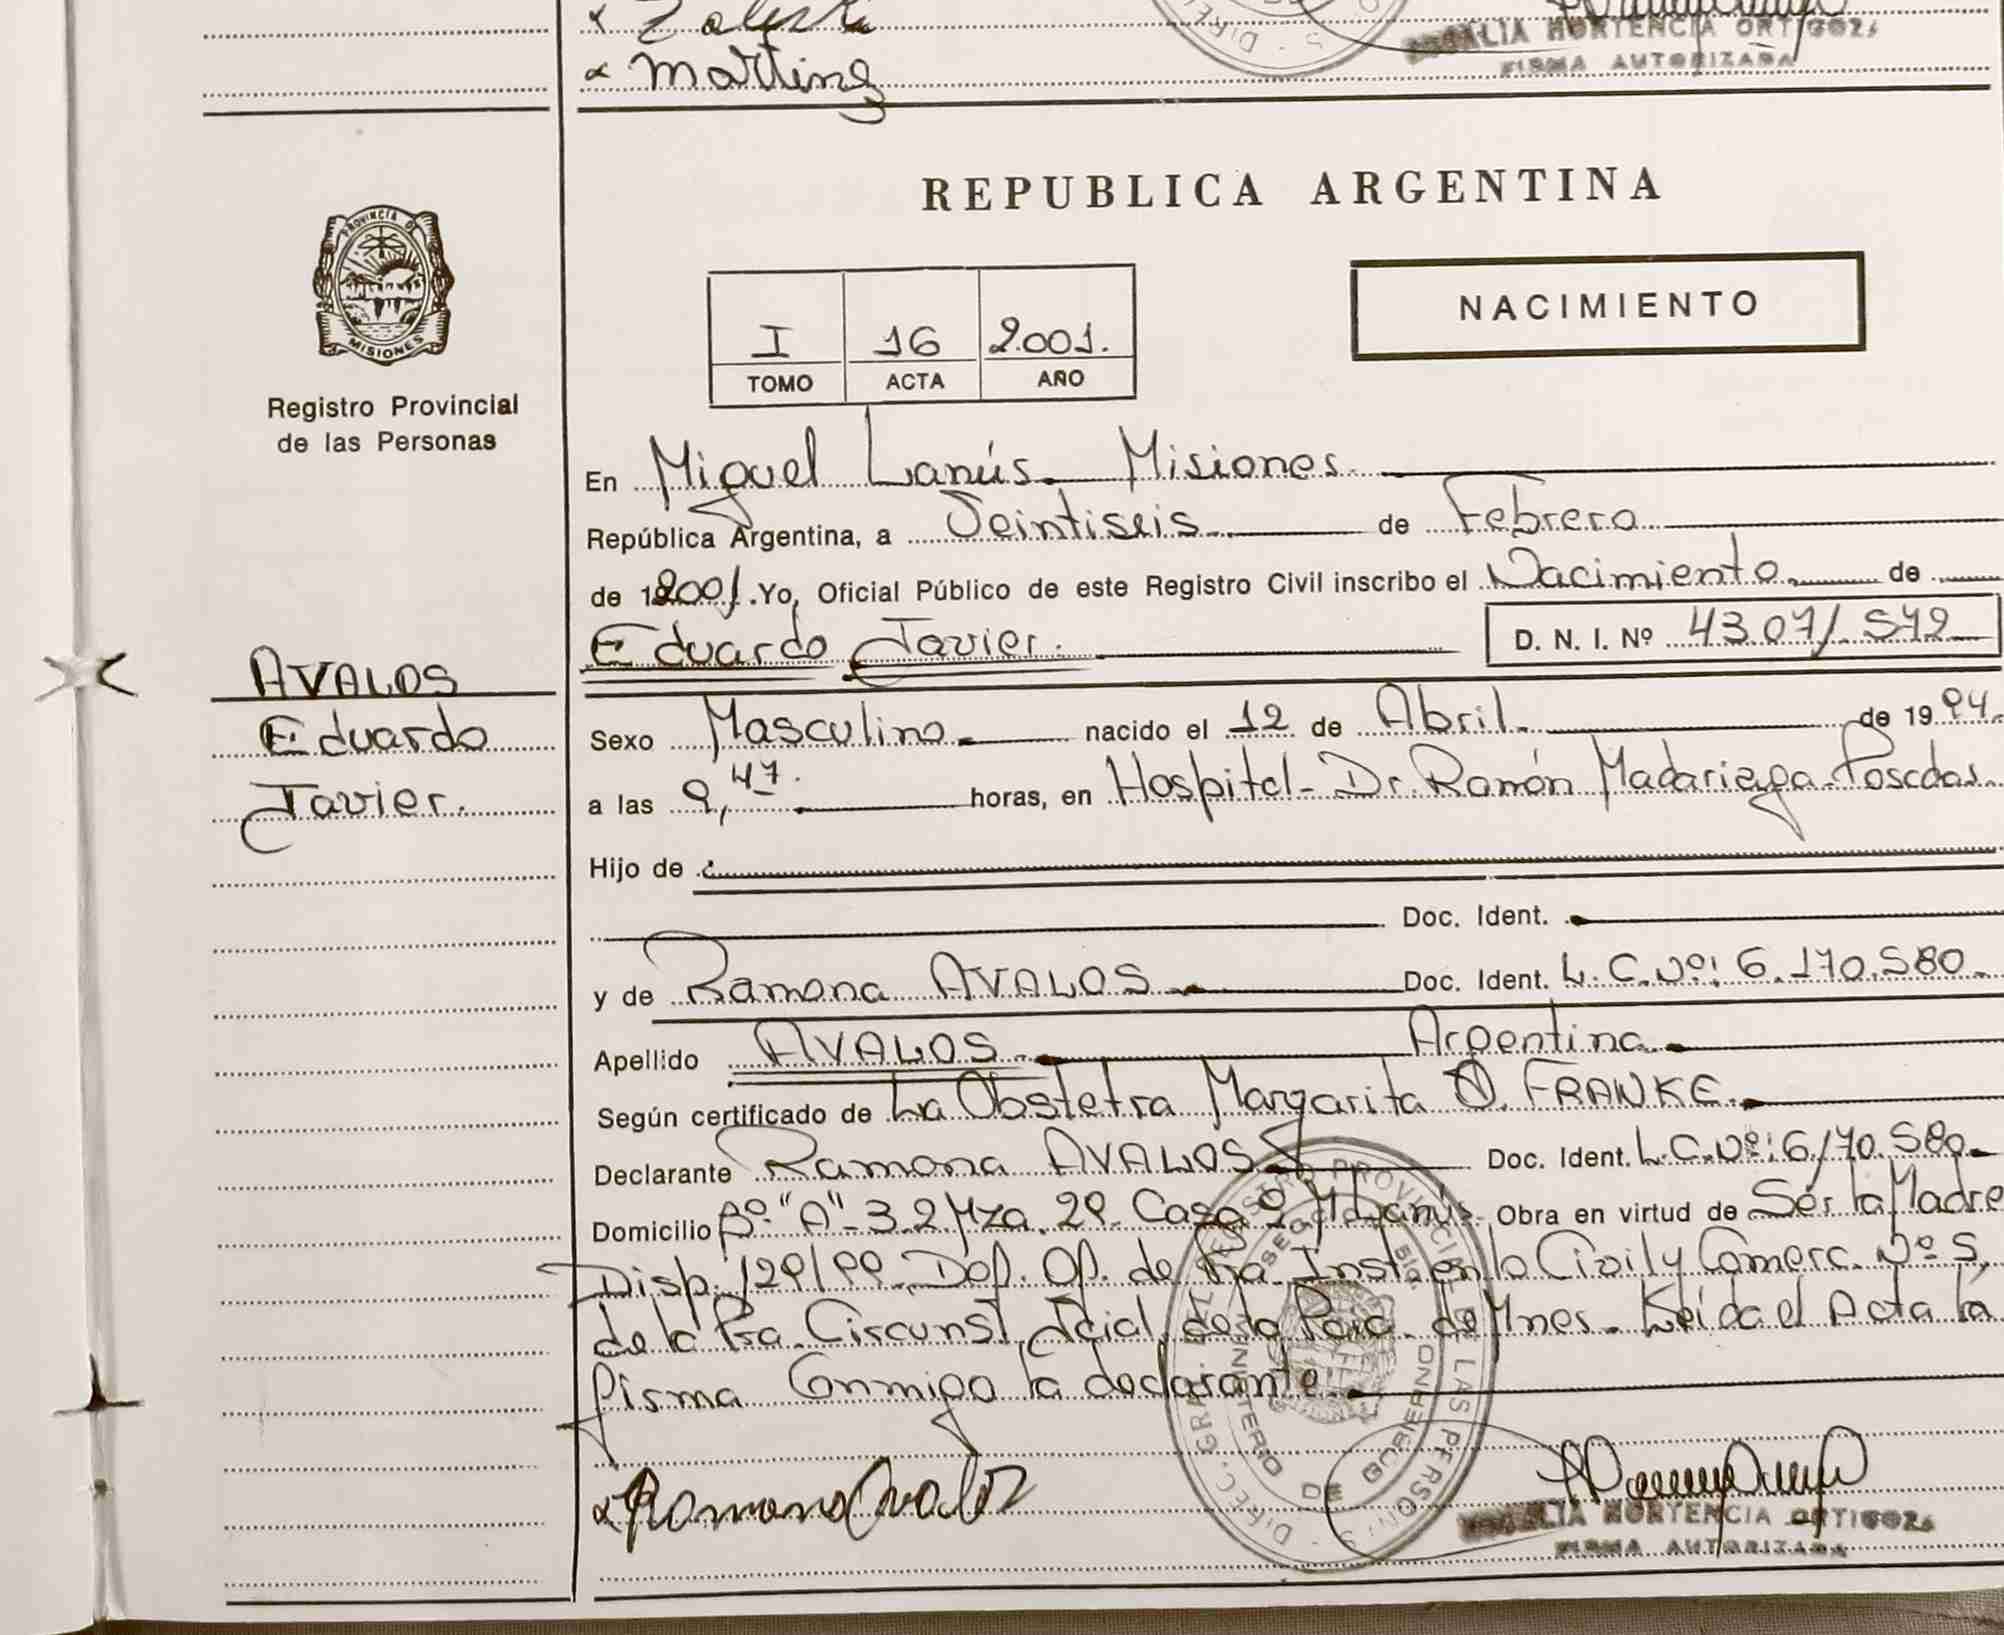 Martinez
ROSALIA HORTENCIA ORTIGOZA
FIRMA AUTORIZADA
REPUBLICA ARGENTINA
PROVINCIA DE
MISIONES
Registro Provincial
de las Personas
I 16 2.001.
TOMO ACTA AÑO
NACIMIENTO
En Miguel Lanús - Misiones
República Argentina, a Veintiseis de Febrero
de 2001. Yo, Oficial Público de este Registro Civil inscribo el Nacimiento de
Eduardo Javier. D. N. I. Nº
AVALOS
Eduardo
Javier.
Sexo Masculino nacido el 12 de Abril de 19 94.
a las 9,47. horas, en Hospital - Dr. Ramón Madariaga - Posadas
Hijo de
Doc. Ident.
y de Ramona AVALOS Doc. Ident. L.C.Nº: 6.170.580.
Apellido AVALOS Argentina
Según certificado de La Obstetra Margarita FRANKE.
Declarante Ramona AVALOS Doc. Ident. L.C.Nº: 6170.580
Domicilio Bº "A" - 3.2 Mza. 29. Casa 9 M. Lanús Obra en virtud de Ser la Madre
Disp. 129/99. Def. Of. de 1ra Inst. en lo Civil y Comerc. Nº 5,
de la 1ra Circunst. Jcial. de la Pcia. de Mnes. Leida el Acta la
firma Conmigo la declarante.
Ramona Avalos
DIREC. GRAL. DEL REGISTRO PROVINCIAL DE LAS PERSONAS
MINISTERIO DE GOBIERNO
ROSALIA HORTENCIA ORTIGOZA
FIRMA AUTORIZADA